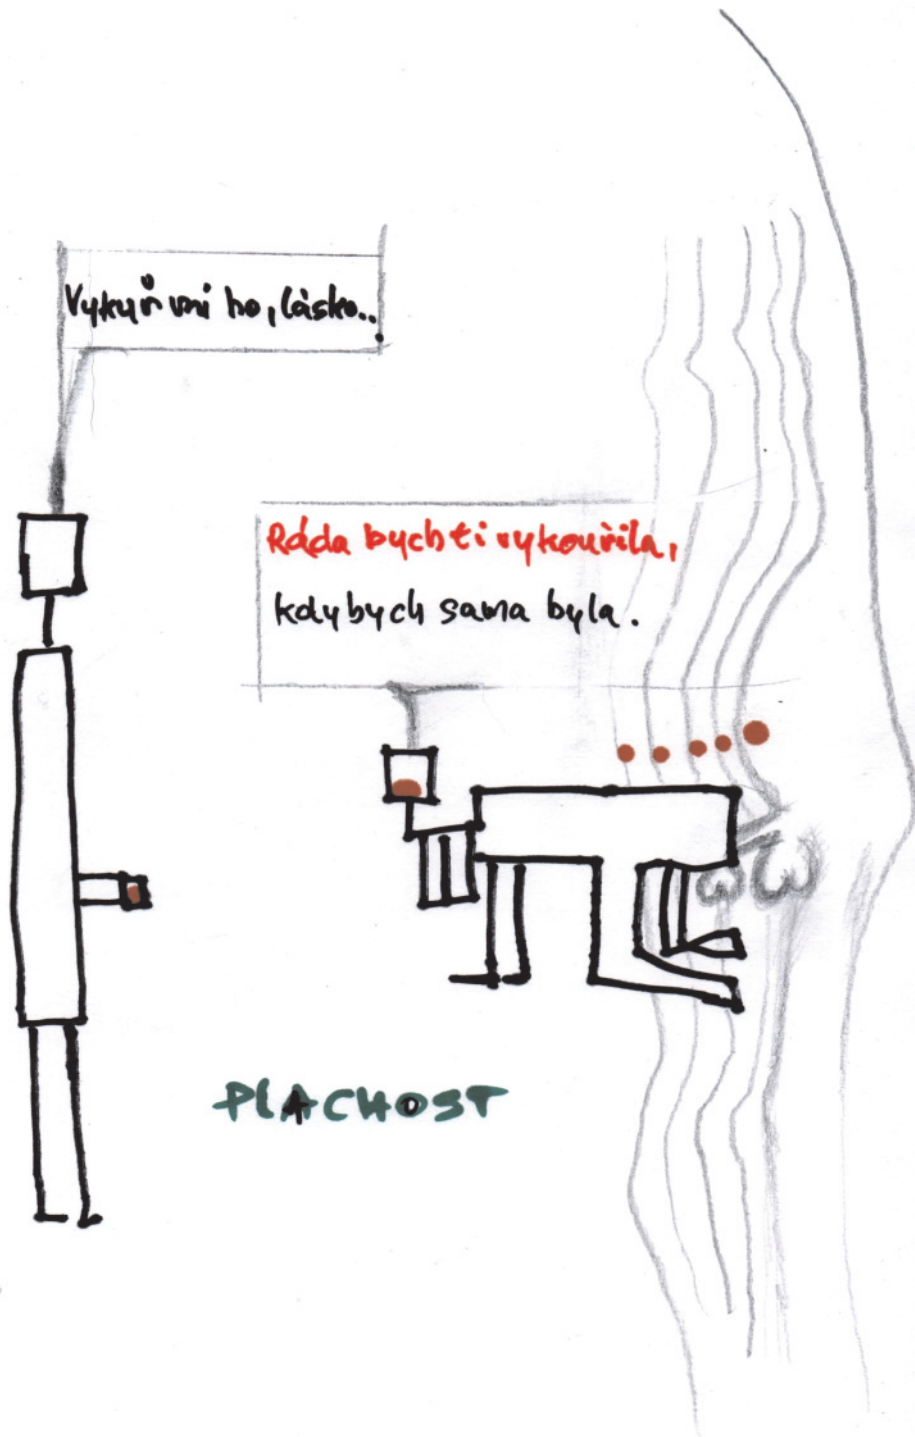 Vykuř mi ho, lásko..
Ráda bych ti vykouřila,
kdybych sama byla.
PLACHOST